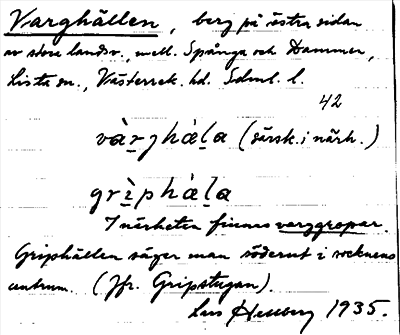 Varghällen, berg på östra sidan
av stora landsv., mell. Spånga och Hammer,
Lista sn., Västerrek. hd. Sdml. l.
42
vàrghàḷa (särsk. i närh.)
grìphàḷa
I närheten finnas varggropar.
Griphällen säger man söderut i socknens
centrum. (Jfr. Gripstugan).
Lars Hellberg 1935.